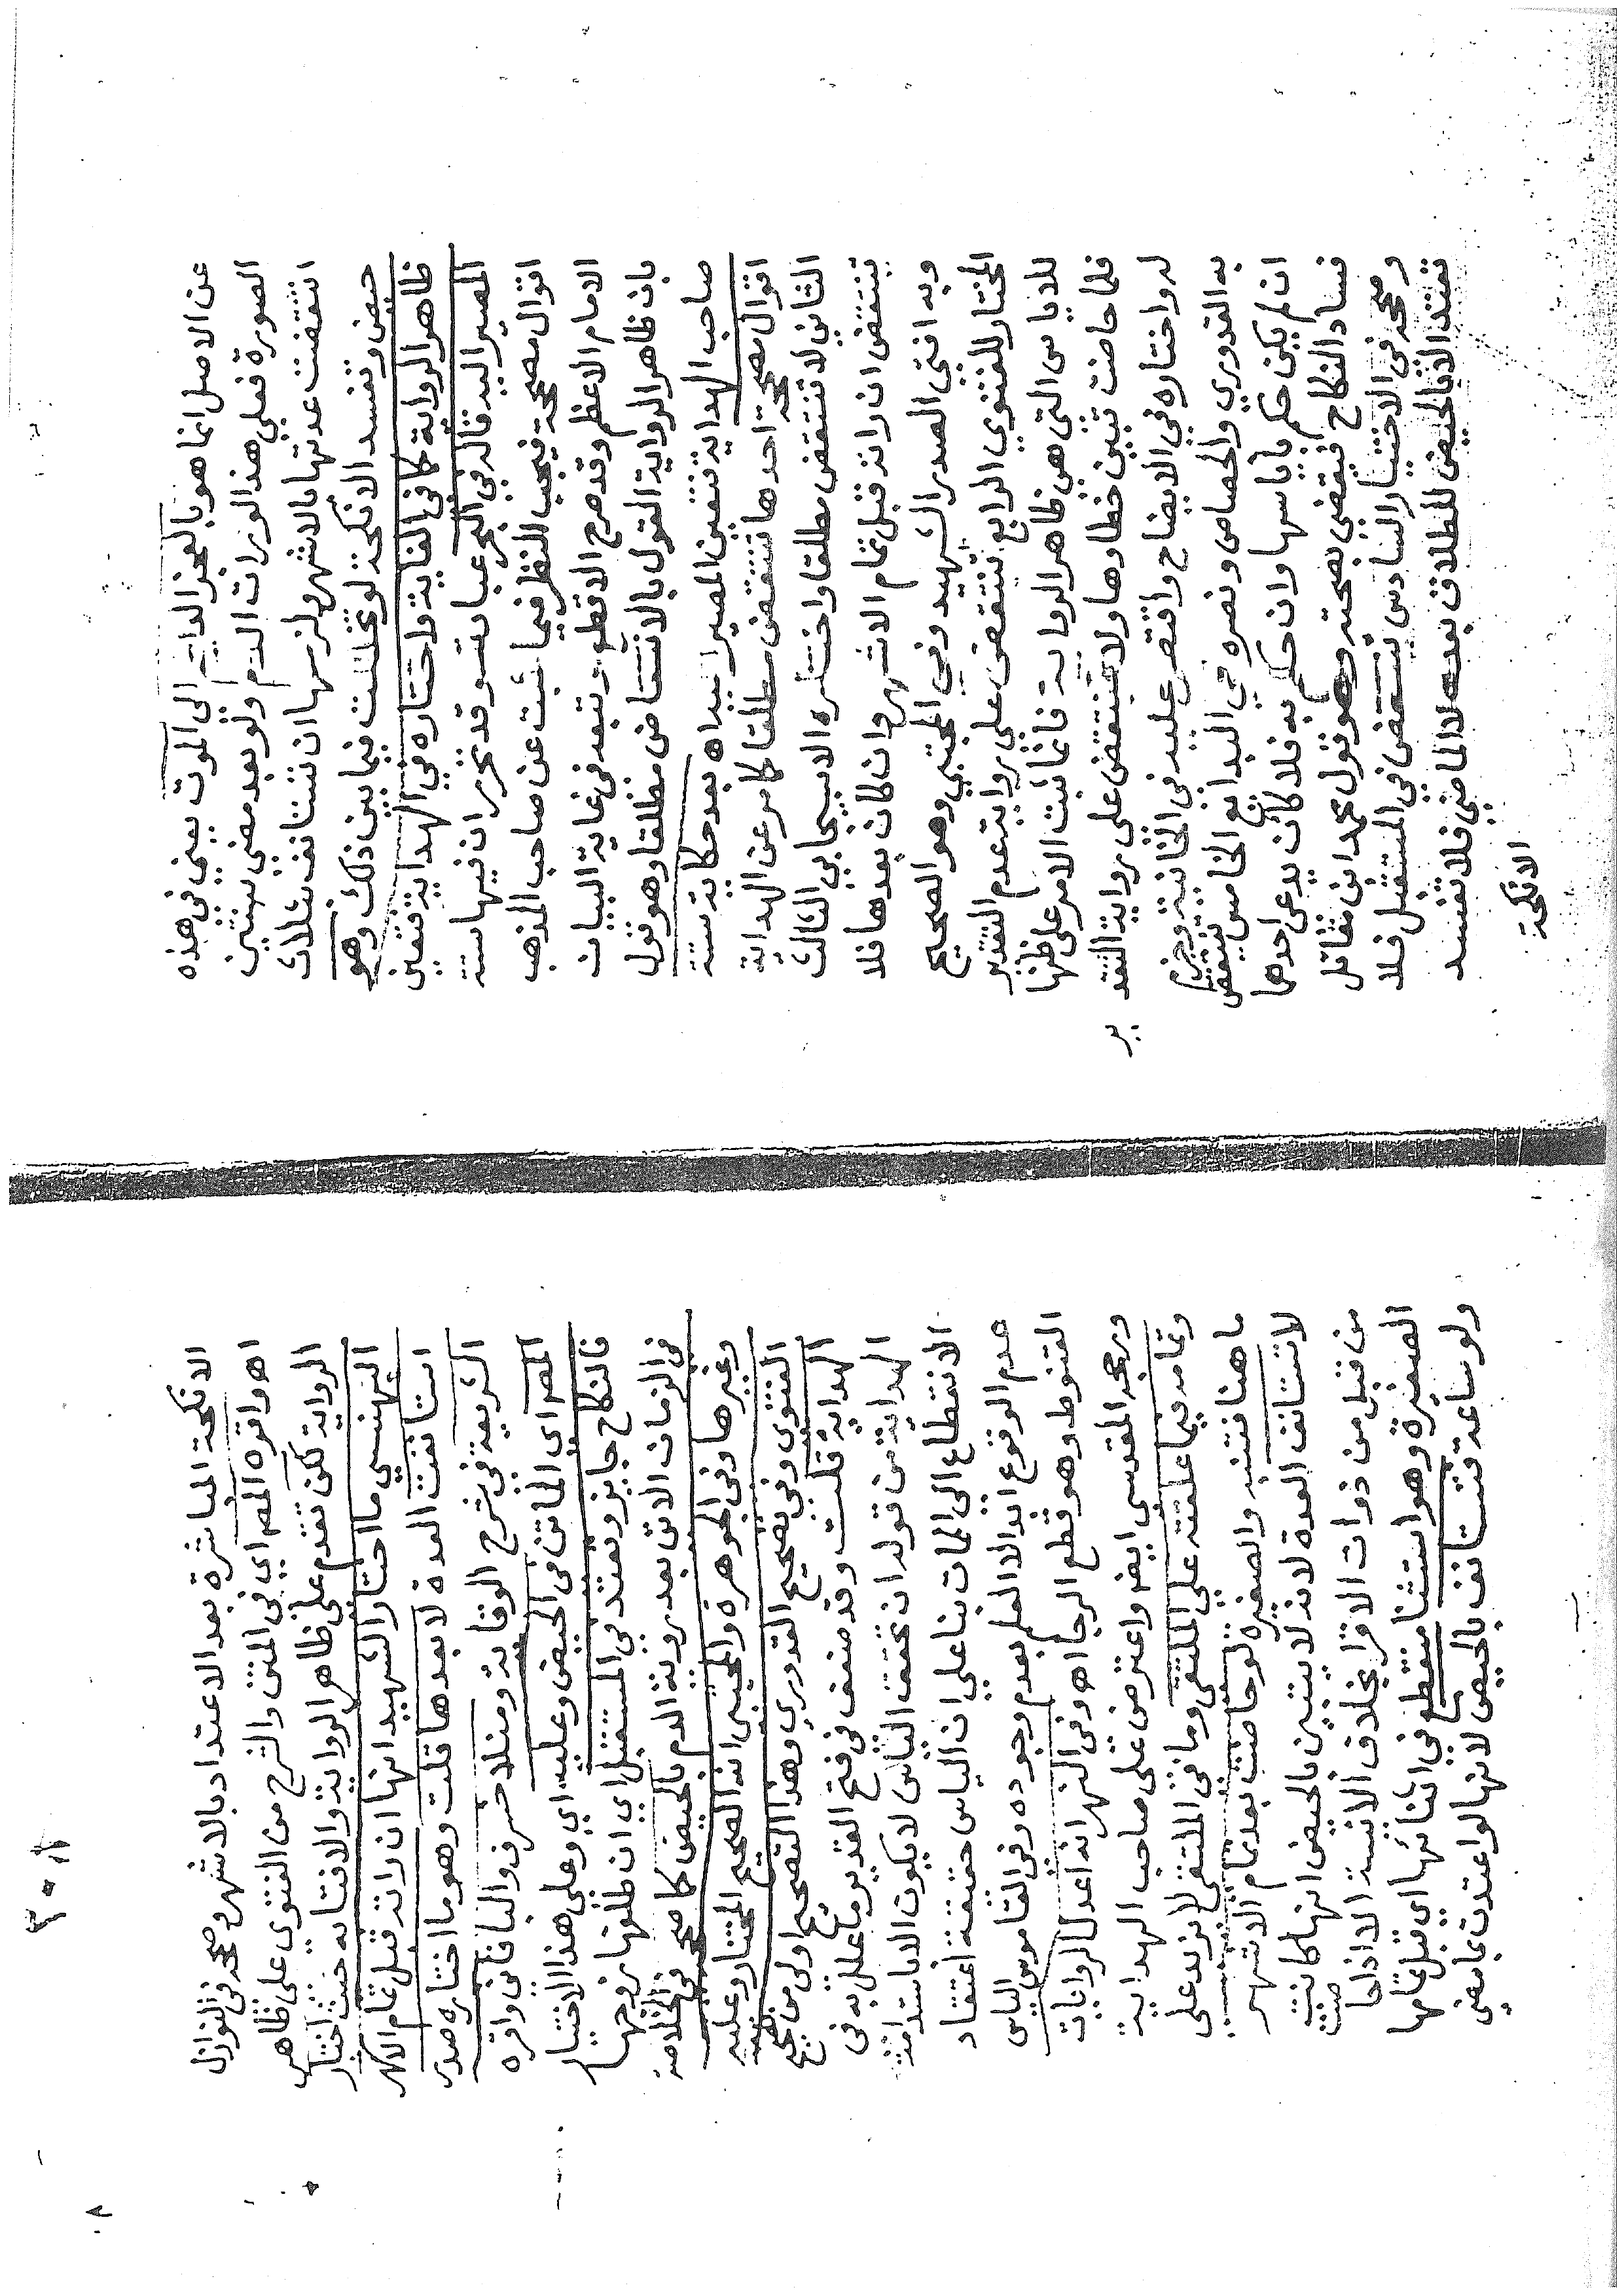 عن الاصل انما هو بالعجز الدايم الى الموت يعني في هذه
الصورة فعلي هذا لورات الدم ولو بعد مضي سنتين
انتقضت عدتها بالاشهر ولزمها ان تستانف بثلاث
حيض وتفسد الانكحة لو تخللت فيما بين ذلك وهو
ظاهر الرواية كما في الغاية واختاره في الهداية فتعين
المصير اليه قاله في البحر عبارته وقد تحرر ان فيها ستة
اقوال مصححة فيجب النظر فيما ثبت عن صاحب المذهب
الامام الاعظم وقد صرح الاقطع وتبعه في غاية البيان
بان ظاهر الرواية القول بالانتقاض مطلقا وهو قول
صاحب الهداية فتعين المصير اليه اه بعد حكاية ستة
اقوال مصححة احدها تنتقض مطلقا كما مر عن الهداية
الثاني لا تنتقض مطلقا واختاره الاسبيجابي الثالث
تنتقض ان راته قبل تمام الاشهر وان كان بعدها فلا
وبه افتى الصدر الشهيد وفي المجتبي وهو الصحيح
المختار للفتوي الرابع تنتقض علي رواية عدم التقدير
للاياس التي هي ظاهر الرواية فانما ثبت الامر على ظنها
فلما حاضت تبين خطاوها ولا تنتقض على رواية التقد
ير
له واختاره في الايضاح واقتصر عليه في الخانية وجزم
به القدوري والجصاص ونصره في البدايع الخامس تنتقض
ان لم يكن حكم باياسها وان حكم به فلا كان يدعى احدهما
فساد النكاح فيقضى بصحته وهو قول محمد ابن مقاتل
وصححه في الاختيار السادس تنتقض في المستقبل فلا
تعتد الا بالحيض للطلاق بعده لا الماضي فلا تفسد
الانكحة
الانكحة المباشرة بعد الاعتداد بالاشهر وصححه في النوازل
اه واقره المصـ اي في المتن والشرح من الفتوى على ظاهر
الرواية لكن تقدم على ظاهر الرواية والافتا به حيث اختار
البهنسي ما اختار الشهيد انها ان راته قبل تمام الاشهر
استانفت العدة لا بعدها قلت وهو ما اختاره صدر
الشريعة في شرح الوقاية ومنلا خسرو والباقاني واقره
المصـ اي الماتن في الحيض وعليه اي وعلى هذا الاختيار
فالنكاح جايز وتعتد في المستقبل اي ان طلقها زوجها
في الزمان الاتي بعد روية الدم بالحيض كما صححه في الخلاصة
وغيرها وفي الجوهرة والمجتبى انه الصحيح المختار وعليه
الفتوى وفي تصحيح القدوري وهذا التصحيح اولى من تصحيح
الهداية قلت وقد ضعف في فتح القدير ما علل به في
الهداية من قوله ان تحقق الياس لا يكون الا باستدامة
الانقطاع الى الممات بناعلي ان الياس حقيقة اعتقاد
عدم الوقوع ابدا لا العلم بعدم وجوده وفي القاموس الياس
القنوط وهو قطع الرجا اه وفي النهر انه اعدل الروايات
ورجحه المقدسي ايضا واعترض على صاحب الهداية
وتمامه فيما علقته علي الملتقى وما في الملتقى لا يزيد على
ما هنا فتنبه والصغيرة لو حاضت بعد تمام الاشهر
لا تستانف العدة لانه لا يتبين بالحيض انها كانت
من قبل من ذوات الاقرا بخلاف الايسة الا اذا حا
ضت
الصغيرة وهو استثنا منقطع في اثنائها اي قبل تمامها
ولو ساعة فتستانف بالحيض لانها لو اعتدت بما مضى